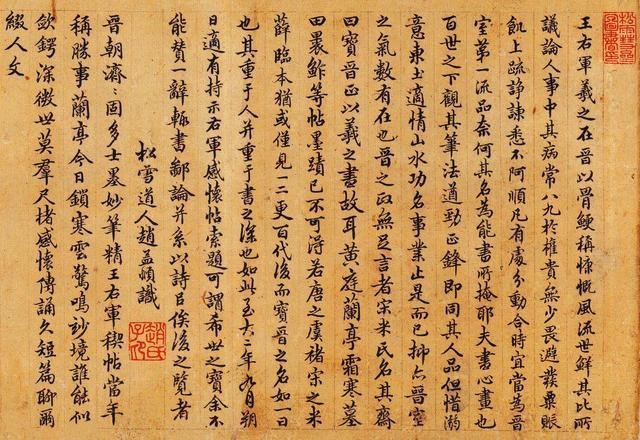 王右軍羲之在晉以骨鯁稱慷慨風流世鮮其比所
議論人事中其病常八九於權貴無少畏避發粟賑
飢上疏諍諫悉不阿順凡有處分動合時宜當為晉
室第一流品奈何其名為能書所掩耶夫書心畫也
百世之下觀其筆法遒勁正鋒即同其人品但惜溺
意東土適情山水功名事業止是而已抑亦晉室
之氣數有在也晉之政無足言者宋米氏名其齋
曰寶晉正以羲之書故耳黃庭蘭亭霜寒墓
田裹鮓等帖墨蹟已不可得若唐之虞褚宋之米
薛臨本猶或僅見一二更百代後而寶晉之名如一日
也其重于人并重于書之深也如此至大二年九月朔
日適有持示右軍感懷帖索題可謂希世之寶余不
能贊一辭輒書鄙論并系以詩且俟後之覽者
松雪道人趙孟頫識
趙氏子昂
晉朝濟〻固多士墨妙筆精王右軍稧帖當年
稱勝事蘭亭今日鎖寒雲驚鳴玅境誰能似
斂鍔深微世莫羣尺楮感懷傳誦久短篇聊爾
綴人文